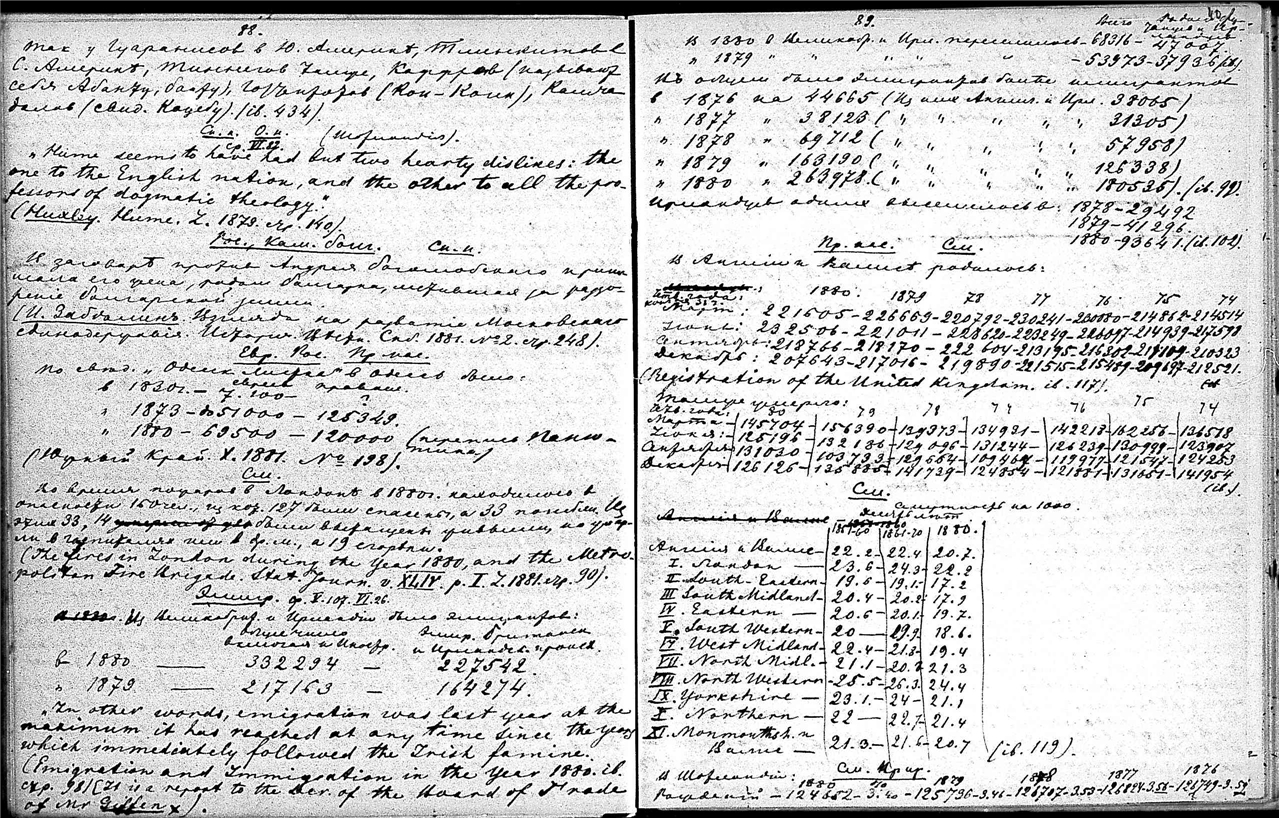 88.
так у Гуаранисов в Ю. Америкѣ, Тлинкитов в
С. Америкѣ,
себя Абанту, банту), готтентотов (Кои-Коин), Камча
далов (свид. Коцебу) (ib. 434).
Сп. н. О. н.
ср. VI. 82. (Шотландія).
„Hume seems to have had but two hearty dislikes: the
one to the English nation, and the other to all the pro-
fessors of dogmatic theology."
(Huxley. Hume. L. 1879. стр. 140).
Рос. Кам. болг. Сп. н.
В заговорѣ против Андрея боголюбскаго прини
мала его жена, родом болгарка, мстившая за разо-
реніе болгарской земли
(И. Забѣлин. Взгляд на развитіе Московскаго
единодержавія. Истор. Вѣстн. Спб. 1881. No 2. стр. 248).
Евр. Рос. Пр. нас.
По свѣд. „Одеск. Листка" в Одессѣ было:
евреев правосл.
в 1830г. — 7.100 — ?
„ 1873 — до 51000 — 125349.
„ 1880 — 69500 — 120000 (перепись Паню-
тина)
(Южный Край. X. 1881. No 198).
См.
Во время пожаров в Лондонѣ в 1880г. находилось в
опасности 160 чел., из кот. 127 были спасены, а 33 погибли. Из
этих 33, 14 были вытащены живыми, но умер-
ли в госпиталях или в др. м., а 19 сгорѣли.
(The fires in London during the year 1880, and the Metro-
politan Fire Brigade. Stat. Journ. v. XLIV. p. I. L. 1881. стр. 90).
Эмигр. ср. V. 107. VI. 26.
Из Великобр. и Ирландіи было эмигрантов:
общее число Эмигр. Британск.
и Ирландск. происх.
в 1880 — 332294 — 227542.
„ 1879 — 217163 — 164274.
„In other words, emigration was last year at the
maximum it has reached at any time since the years
which immediately followed the Irish famine.
(Emigration and Immigration in the year 1880. ib.
стр. 98 (It is a report to the Secr. of the Board of Trade
of Mr Giffen).
89.
Всего
В 1880 в Великобр. и Ирл. переселилось — 68316 — 47007.
„ 1879 „ — 53973 — 37936 (ib.)
Въ общем было эмигрантов болѣе иммигрантов
в 1876 на 44665 (Из них Англич. и Ирл. 38065)
„ 1877 „ 38123 ( „ „ „ „ 31305)
„ 1878 „ 69712 ( „ „ „ „ 57958)
„ 1879 „ 163190 ( „ „ „ „ 126338)
„ 1880 „ 263978 ( „ „ „ „ 180535). (ib. 99).
Ирландцев одних выселилось в: 1878 — 29492
1879 — 41296.
1880 — 93641. (ib. 102).
Пр. нас. См.
В Англіи и Валисѣ родилось:
1880. 1879 78 77 76 75 74
Март: 221605 — 226669 — 220792 — 230241 — 230080 — 214862 — 214514
Іюнь: 232506 — 221011 — 228620 — 223249 — 226097 — 214939 — 217590
Сентябрь: 218766 — 218170 — 222604 — 213195 — 216202 — 217109 — 210323
Декабрь: 207643 — 217016 — 219890 — 221515 — 215489 — 209697 — 212521.
(Registration of the United Kingdom. ib. 117).
Там же умерло:
80 79 78 77 76 75 74
Марта — 145704 — 156390 — 139373 — 134931 — 142213 — 162256 — 136518
Іюня: — 125196 — 132136 — 129096 — 131244 — 126239 — 130999 — 123907
Сентября — 131030 — 103793 — 129684 — 109462 — 119977 — 121547 — 124253
Декабря — 126126 — 135835 — 141739 — 124854 — 121881 — 131651 — 141954
(ib.).
См.
Смертность на 1000.
1851-60 1861-70 1880.
Англія и Валис — 22.2 — 22.4 — 20.7.
I. Лондон — 23.6 — 24.3 — 22.2
II South-Eastern — 19.6 — 19.1 — 17.2
III South Midland — 20.4 — 20.2 — 17.9
IV. Eastern — 20.6 — 20.1 — 19.7.
V. South Western — 20 — 18.6.
VI. West Midland — 22.4 — 21.8 — 19.4
VII. North Midl. — 21.1 — 21.3
VIII. North Western — 25.5 — 26.3 — 24.4
IX. Yorkshire — 23.1 — 24 — 21.1
X. Northern — 22 — 22.7 — 21.4
XI. Monmouthsh. и
Валис — 21.3 — 21.6 — 20.7 (ib. 119).
См. Прир.
В Шотландіи: 1880 % 1879 1878 1877 1876
Рожденій — 124652 — 3.40 — 125736 — 3.46 — 126707 — 3.53 — 126824 — 3.56 — 126749 — 3.59